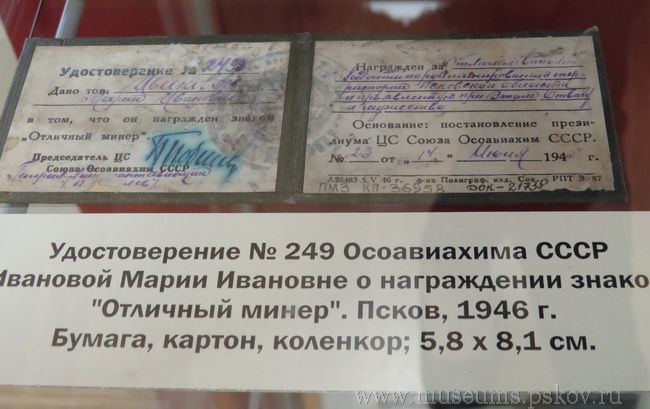 Удостоверение № 249
Дано тов.
Марии Ивановне
в том, что он награжден знаком
„Отличный минер"
Председатель ЦС
Союза Осоавиахим СССР
Награжден за Отличное вып.
территории Псковской области
и проявленную при этом Отвагу
и мужество
Основание: постановление прези-
диума ЦС Союза Осоавиахим СССР.
№ 23 от „14" Июня 194 г.
Л28483 5.V 46 г. ф-ка Полиграф. изд. Сок. РПТ З. 87
ПМЗ КП-36958 ДОК-21738
Удостоверение № 249 Осоавиахима СССР
Ивановой Марии Ивановне о награждении знако
"Отличный минер". Псков, 1946 г.
Бумага, картон, коленкор; 5,8 х 8,1 см.
www.museums.pskov.ru